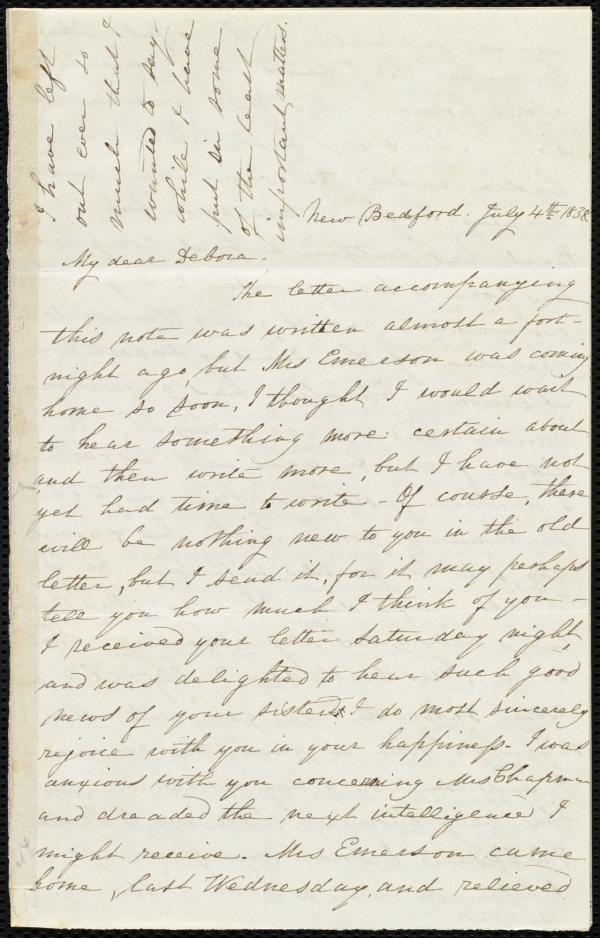 I have left
out ever so
much that I
wanted to say
while I have
put in some
of the least
important matters.
New Bedford. July 4th. 1838.
My dear Debora,
The letter accompanying
this note was written almost a fort-
night ago, but Mrs Emerson was coming
home so soon, I thought I would wait
to hear something more certain about
and then write more, but I have not
yet had time to write - Of course, there
will be nothing new to you in the old
letter, but I send it, for it may perhaps
tell you how much I think of you -
I received your letter Saturday night,
and was delighted to hear such good
news of your sister. I do most sincerely
rejoice with you in your happiness. I was
anxious with you concerning Mrs Chapman
and dreaded the next intelligence I
might receive. Mrs Emerson came
home, last Wednesday, and relieved